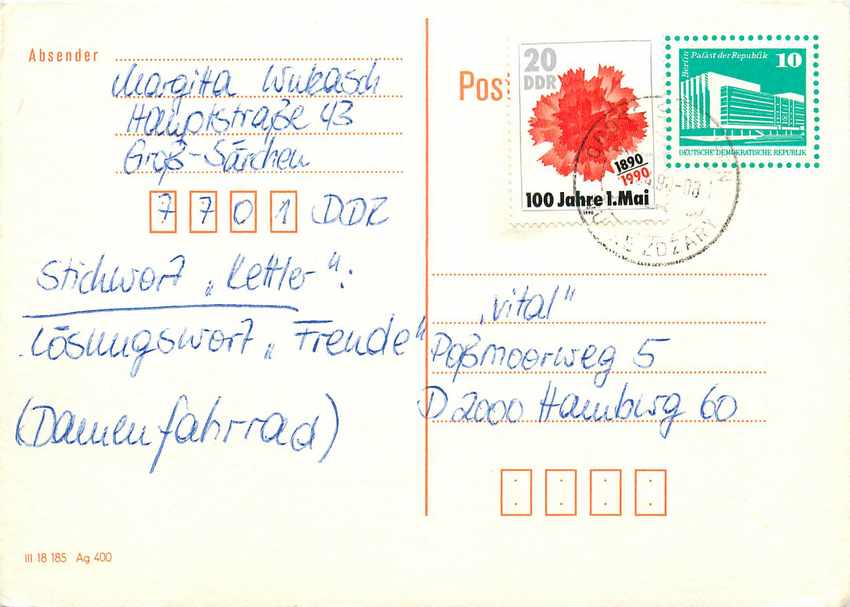 Absender
Margitta Wukasch
Hauptstraße 43
Groß-Särchen
7701 DDR
Stichwort „Kettler":
Lösungswort „Freude"
(Damenfahrrad)
III 18 185 Ag 400
Pos
20
DDR
1890
1990
100 Jahre 1. Mai
1990
Berlin Palast der Republik
10
DEUTSCHE DEMOKRATISCHE REPUBLIK
ZDZARY
„Vital"
Poßmoorweg 5
D 2000 Hamburg 60